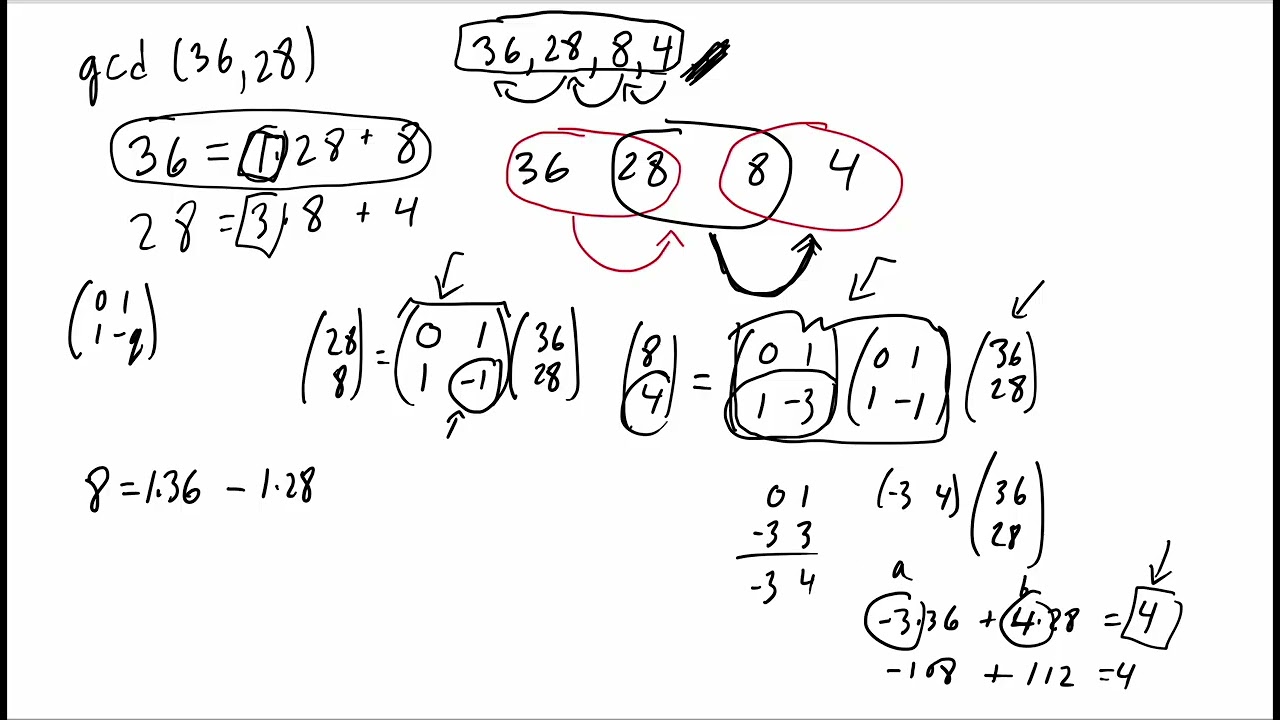 gcd (36,28)
36 = 1·28 + 8
28 = 3·8 + 4
36, 28, 8, 4
36 28 8 4
(0 1
1 -q)
(28
8) = (0 1
1 -1) (36
28)
(8
4) = (0 1
1 -3) (0 1
1 -1) (36
28)
8 = 1·36 - 1·28
0 1
-3 3
-3 4
(-3 4) (36
28)
a b
-3·36 + 4·28 = 4
-108 + 112 = 4